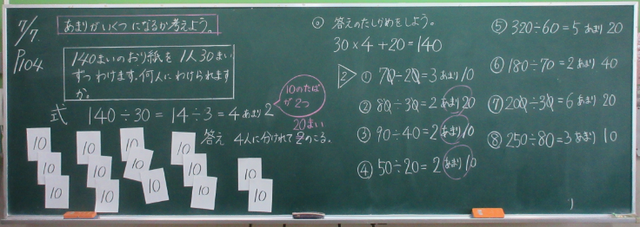 7/7
P104
あまりがいくつになるか考えよう。
140まいのおり紙を1人30まい
ずつわけます。何人にわけられます
か。
式 140÷30=14÷3=4あまり2
10のたば
が2つ
20まい
答え 4人に分けれて2のこる。
10
10
10
10
10
10
10
10
10
10
10
10
10
10
◎ 答えのたしかめをしよう。
30×4+20=140
2
① 70-20=3あまり10
② 80÷30=2あまり20
③ 90÷40=2あまり10
④ 50÷20=2あまり10
⑤ 320÷60=5あまり20
⑥ 180÷70=2あまり40
⑦ 200÷30=6あまり20
⑧ 250÷80=3あまり10